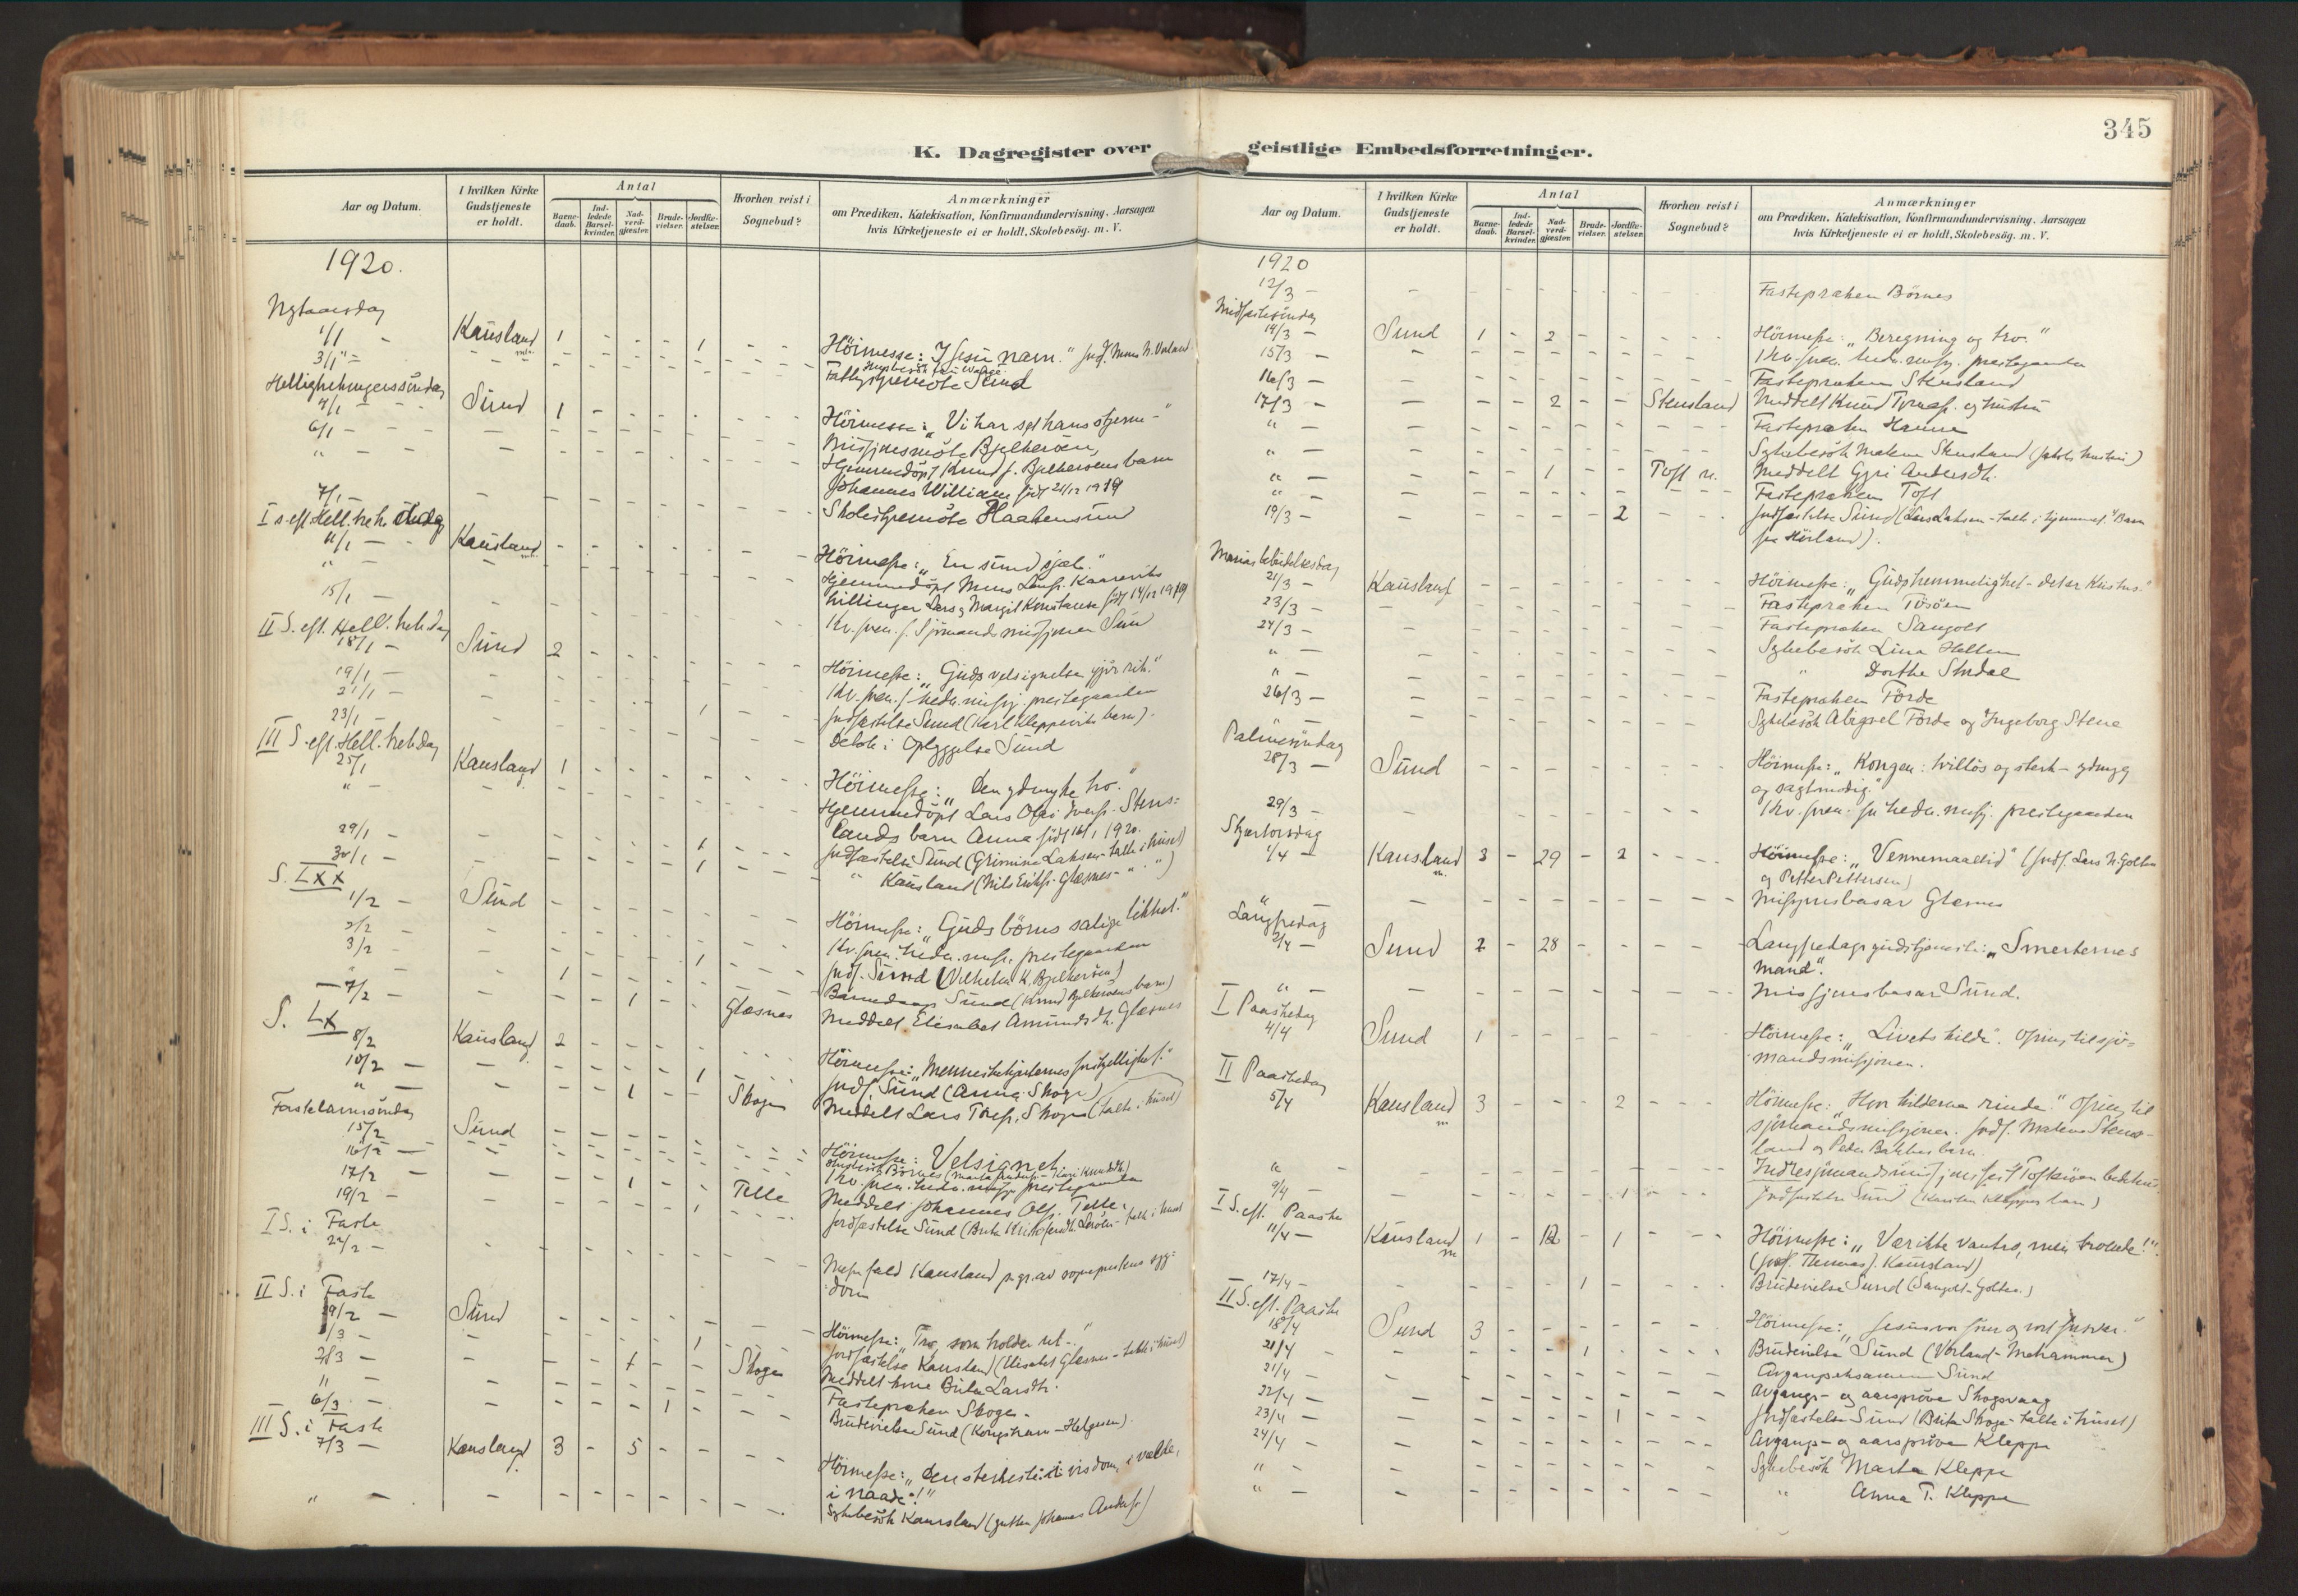 345
K. Dagregister over geistlige Embedsforretninger.
Aar og Datum.
I hvilken Kirke Gudstjeneste er holdt.
Antal
Barne-daab.
Ind-ledede Barsel-kvinder.
Nad-verd-gjæster.
Brude-vielser.
Jordfæ-stelser.
Hvorhen reist i Sognebud?
Anmærkninger
om Prædiken, Katekisation, Konfirmandundervisning, Aarsagen
hvis Kirketjeneste ei er holdt, Skolebesög, m. V.
1920.
Nytaarsdag
1/1 - Kausland 1 - - - 1 - - Höimesse: "I Jesu navn."
3/1 - Fattigstyremöte Sund
Helligtrekongerssöndag
4/1 - Sund 1 - Höimesse: "Vi har set hans stjerne -"
6/1 - Missjonsmöte Bjelkeröen
" - Hjemmedöpt Knud J. Bjelkeröens barn
Johannes William född 21/12 1919
7/1 - Skolestyremöte Haakensund
I s. eft. Hell. trek. dag
11/1 - Kausland Höimesse: "En sund sjæl."
" - Hjemmedöpt Mons Larss. Kaareviks
tvillinger Lars og Margit Konstanse född 14/12 1919
15/1 - Kv. foren. f. Sjömandsmissjonen Sund
II S. eft. Hell. trek. dag
18/1 - Sund 2 Höimesse: "Guds velsignelse gjör rik."
19/1 - Kv. foren. f. hedn. missj. prestegaarden
21/1 - 1 Jordfæstelse Sund (Karl Kleppeviks barn).
23/1 - Deltok i Opbyggelse Sund
III S. eft. Hell. trek. dag
25/1 Kausland 1 Höimesse: "Den ydmyke tro."
" - Hjemmedöpt Lars Olai Iverss. Stens=
lands barn Anna född 16/1 1920.
29/1 - 1 Jordfæstelse Sund (Grimine Laksen - talte i huset)
30/1 - 1 " Kausland (Nils Erikss. Glæsnes - " - ")
S. LXX
1/2 - Sund Höimesse: "Guds börns salige likhet."
2/2 - Kv. foren. hedn. miss. prestegaarden
3/2 - 1 Jordf. Sund (Vilhelm K. Bjelkeröen)
" - 1 Barnedaab Sund (Knud Bjelkeröens barn)
7/2 - 1 Glæsnes Meddelt Elisabet Amundsdtr. Glæsnes
S. LX
8/2 Kausland 2 Höimesse: "Menneskehjerternes forskjellighet."
10/2 - 1 Jordf. Sund (Anna Skoge)
" - 1 Skoge Meddelt Lars Tores. Skoge (talte i huset)
Fastelavnsöndag
15/2 Sund Höimesse: Velsignet
16/2 - Kv. foren. hedn. missj. prestegaarden
17/2 - 1 Telle Meddelt Johannes Ols. Telle.
19/2 - 1 Jordfæstelse Sund
I S. i Faste
22/2 - Messefald Kausland p. gr. av sogneprestens syg=
dom
II S. i Faste
29/2 - Sund Höimesse: "Tro, som holder ut -."
1/3 - 1 Jordfæstelse Kausland (Elisabet Glæsnes - talte i huset)
2/3 - 1 Skoge Meddelt kone Brita Larsdtr.
" - Fastepræken Skoge.
6/3 - 1 Brudevielse Sund (Kongshavn - Helgesen).
III S. i Faste
7/3 - Kausland 3 - 5 - - Höimesse: "Den sterkeste: i visdom, i vælde,
i naade!"
" - Sykebesök Kausland (gutten Johannes Anderss.)
1920
12/3 - Fastepræken Börnes
Midfastesöndag
14/3 - Sund 1 - 2 - Höimesse: "Beregning og tro."
15/3 - Kv. foren. hedn. missj. prestegaarden
16/3 - Fastepræken Stensland
17/3 - 2 - - Stensland Meddelt Knud Tomass. og hustru
" - Fastepræken Hamre
" - Sykebesök Malene Stensland (Jakobs hustru)
" - 1 - - Toft Meddelt Gyri Andersdtr.
" - Fastepræken Toft
19/3 - 2 Jordfæstelse Sund (Lars Laksen - talte i hjemmet. Barn
fra Hörland).
Mariæ bebudelsesdag
21/3 - Kausland Höimesse: "Guds hemmelighet - det er Kristus."
23/3 - Fastepræken Tösöen
24/3 - Fastepræken Sangolt
" - Sykebesök Lina Hellen
" - " Dorthe Sördal
26/3 - Fastepræken Förde
Sykebesök Abigael Förde og Ingeborg Stene
Palmesöndag
28/3 - Sund Höimesse: "Kongen: hvillös og sterk - ydmyg
og sagtmodig."
29/3 - Kv. foren. for hedn. missj. prestegaarden
Skjærtorsdag
1/4 - Kausland 3 - 29 - 2 - Höimesse: "Vennemaaltid" (Jordf. Lars N. Golten
og Petter Pettersen)
" Missjonsbasar Glesnes
Langfredag
2/4 - Sund 2 - 28 - Langfredagsgudstjeneste: "Smerternes
Mand".
" - Missjonsbasar Sund.
I Paaskedag
4/4 Sund 1 Höimesse: "Livets kilde". Ofring til sjö=
mandsmissjonen.
II Paaskedag
5/4 Kausland 3 - - - 2 Höimesse: "Hvor kilderne rinde." Ofring til
sjömandsmissjonen. Jordf. Malene Stens-
land og Peder Bakkes barn.
" Indresjömandsmissjonsfest Toftöröen bedehus.
9/4 - 1 Jordfæstelse Sund (Karsten Kleppes barn)
I S. eft. Paaske
11/4 - Kausland 1 - 12 - 1 - Höimesse: "Vær ikke vantro, men troende!"
(Jordf. Thomas J. Kausland)
17/4 - 1 Brudevielse Sund (Sangolt - Golten.)
II S. eft. Paaske
18/4 Sund 3 Höimesse: "Jesus vor
21/4 1 Brudevielse Sund (Vorland - Mehammer)
21/4 - Avgangseksamen Sund
22/4 - Avgangs- og aarspröve Skogsvaag
23/4 - 1 Jordfæstelse Sund (Brita Skoge - talte i huset)
24/4 - Avgangs- og aarspröve Kleppe
" - Sykebesök Marta Kleppe
" - " Anna T. Kleppe